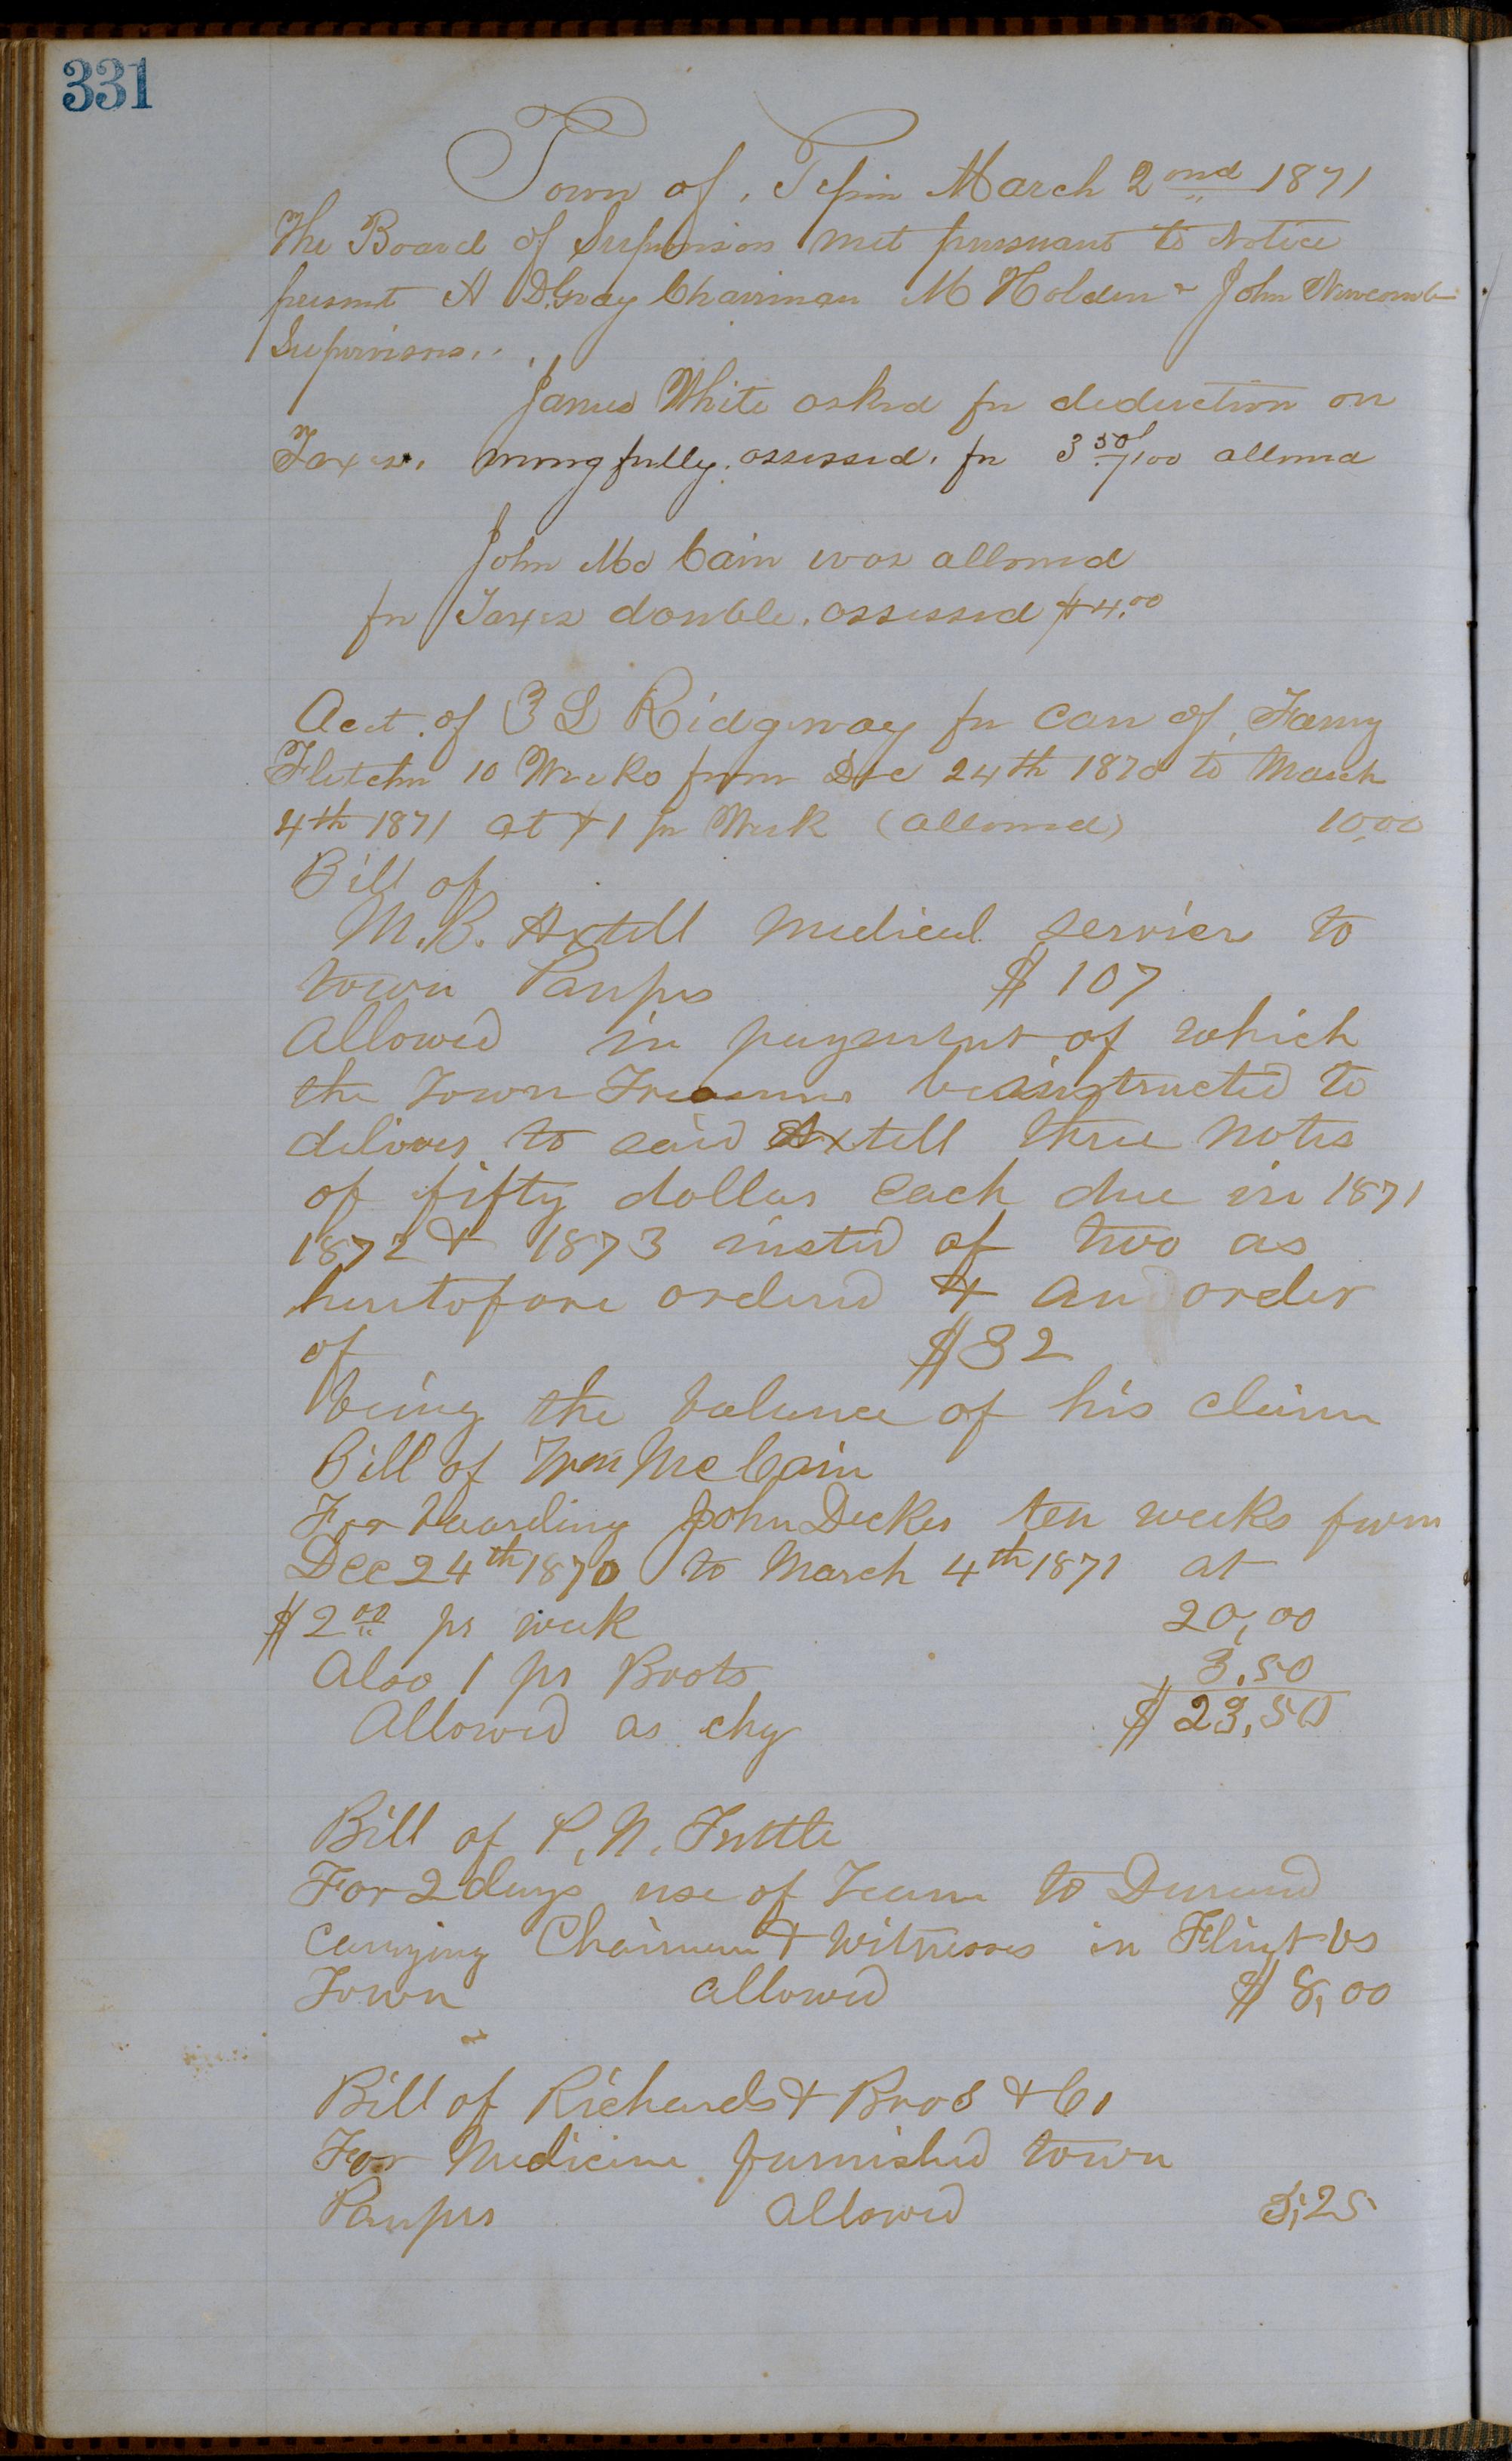 331
Town of Pepin March 2nd 1871
The Board of Supervisors met pursuant to Notice
present A D. Gray Chairman M Holden & John Newcomb
Supervisors.
James White asked for deduction on
Taxes. wrongfully. assessed. for 3 50/100 allowed
John Mc Cain was allowed
for Taxes double. assessed $4.00
Acct. of L Ridgway for care of Fanny
Fletcher 10 Weeks from Dec 24th 1870 to March
4th 1871 at $1 pr Week (allowed) 10.00
Bill of
M. B. Axtell Medical services to
town Paupers $107
Allowed in payment of which
the Town Treasurer be instructed to
deliver to said Axtell three notes
of fifty dollars each due in 1871
1872 & 1873 insted of two as
heretofore ordered & an order
of $32
being the balance of his claim
Bill of Wm McCain
For boarding John Decker ten weeks from
Dec 24th 1870 to March 4th 1871 at
$2.00 pr week 20,00
Also 1 pr Boots 3.50
Allowed as chg $23,50
Bill of P. N. Tuttle
For 2 days use of Team to Durand
carrying Chairman & Witnesses in Flint vs
Town allowed $8,00
Bill of Richards & Bros & Co
For Medicine furnished town
Paupers Allowed 5,25